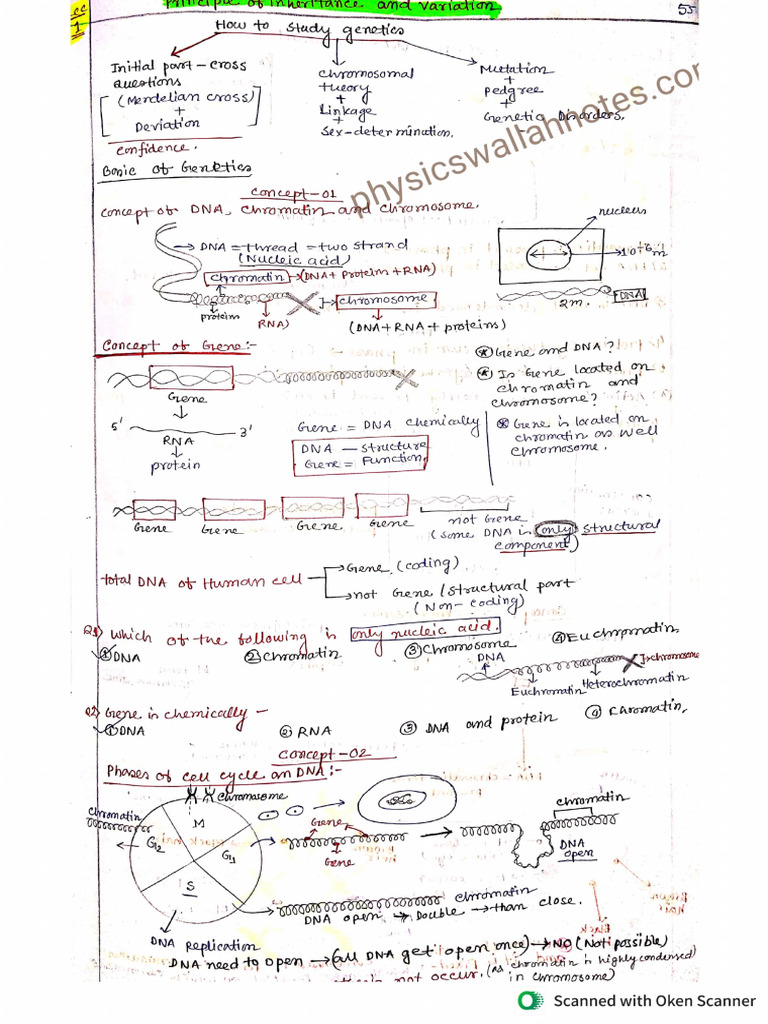 Lec
1
Principle of inheritance and variation
55
How to study genetics
Initial part - cross
questions
(Mendelian cross)
+
Deviation
confidence.
chromosomal
theory
+
Linkage
+
Sex-determination.
Mutation
+
Pedgree
+
Genetic Disorders.
physicswallahnotes.com
Basic of Genetics
Concept-01
concept of DNA, chromatin and chromosome.
DNA = thread = two strand
(Nucleic acid)
chromatin → (DNA + Protein + RNA)
protein
RNA)
chromosome
(DNA + RNA + proteins)
nucleus
10⁻⁶m
2m.
DNA
Concept of Gene:-
Gene
5'
3'
RNA
protein
Gene = DNA chemically
DNA — structure
Gene = Function
Gene and DNA?
Is Gene located on
chromatin and
chromosome?
Gene is located on
chromatin as well
chromosome.
Gene
Gene
Gene.
Gene
not Gene
(some DNA is only structural
component)
total DNA of Human cell
Gene (coding)
not Gene / structural part
(Non-coding)
Q1) Which of the following is only nucleic acid.
① DNA
② chromatin
③ chromosome
④ Euchromatin.
DNA
chromosome
Euchromatin
Heterochromatin
Q2) Gene is chemically -
① DNA
② RNA
③ DNA and protein
④ Chromatin.
Concept-02
Phases of cell cycle an DNA:-
chromasome
chromatin
M
G₂
G₁
S
Gene
Gene
chromatin
DNA
open
chromatin
DNA open → Double → than close.
DNA replication
DNA need to open → (all DNA get open once) → NO (Not possible)
not occur. (as chromatin is highly condensed)
in chromosome)
Scanned with Oken Scanner